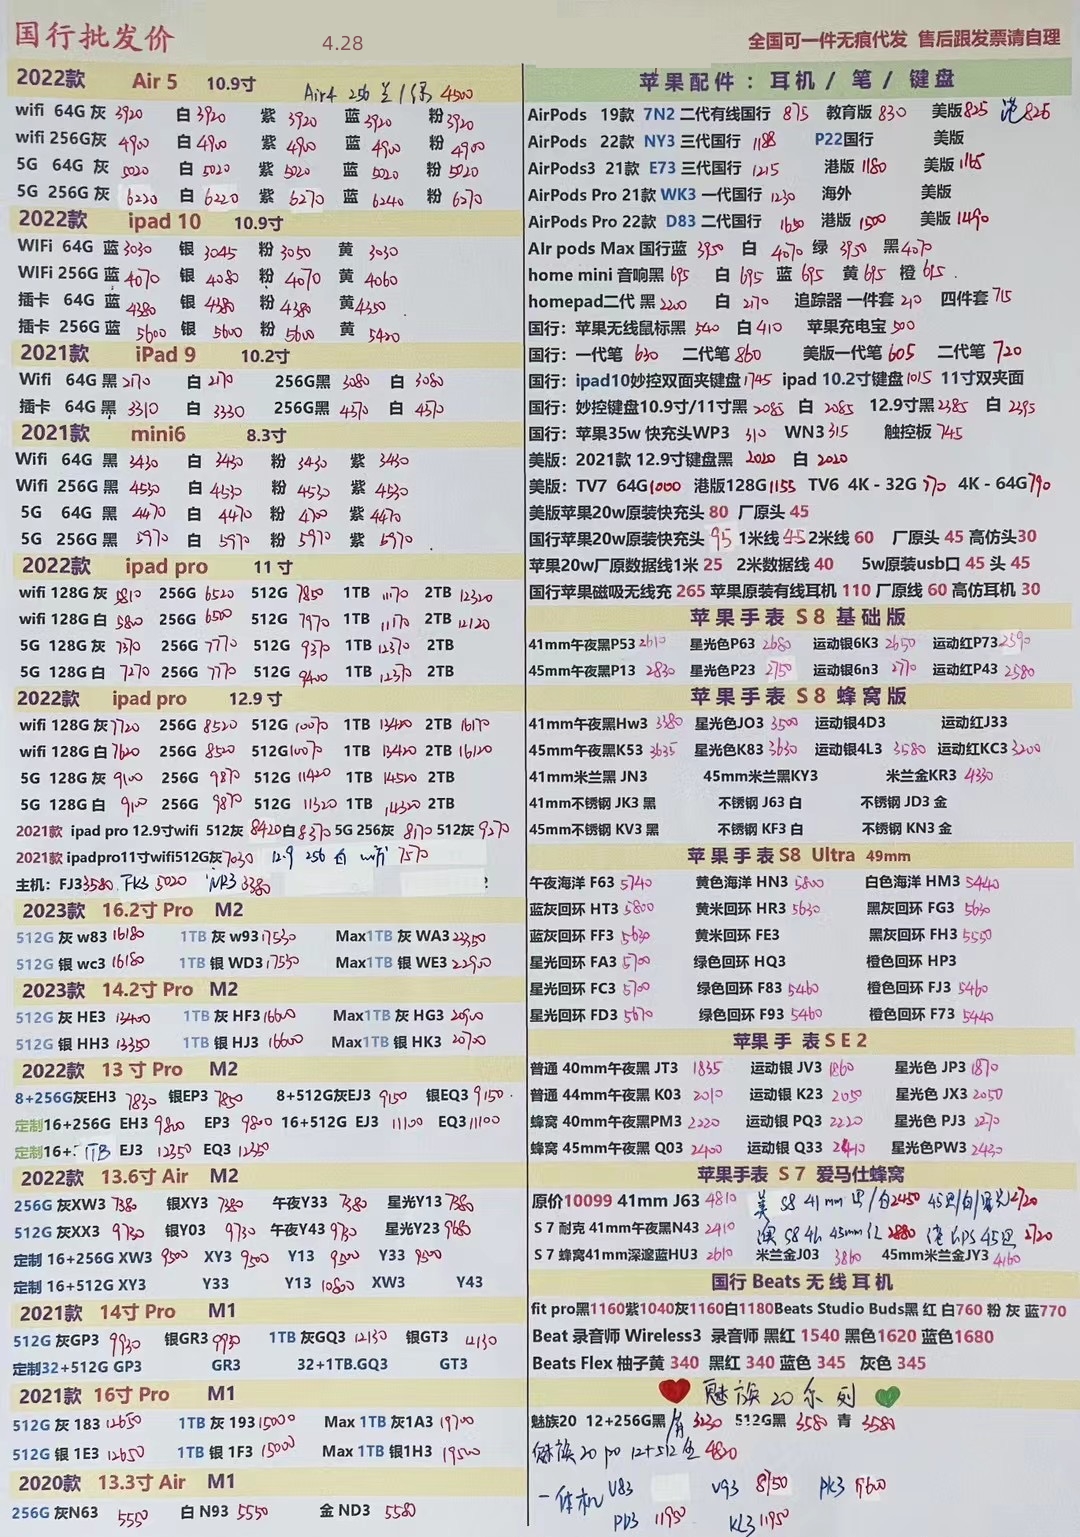 国行批发价
4.28
全国可一件无痕代发 售后跟发票请自理
2022款 Air 5 10.9寸 Air4 256 兰/绿 4500
wifi 64G 灰 3920 白 3920 紫 3920 蓝 3920 粉 3920
wifi 256G灰 4900 白 4900 紫 4900 蓝 4900 粉 4900
5G 64G 灰 5020 白 5020 紫 5020 蓝 5020 粉 5020
5G 256G 灰 6220 白 6220 紫 6270 蓝 6240 粉 6270
2022款 ipad 10 10.9寸
WIFi 64G 蓝 3030 银 3045 粉 3050 黄 3030
WIFi 256G 蓝 4070 银 4080 粉 4070 黄 4060
插卡 64G 蓝 4380 银 4380 粉 4380 黄 4350
插卡 256G 蓝 5600 银 5600 粉 5600 黄 5420
2021款 iPad 9 10.2寸
Wifi 64G 黑 2170 白 2170 256G黑 3080 白 3080
插卡 64G 黑 3310 白 3330 256G黑 4370 白 4370
2021款 mini6 8.3寸
Wifi 64G 黑 3430 白 3430 粉 3430 紫 3430
Wifi 256G 黑 4530 白 4530 粉 4530 紫 4530
5G 64G 黑 4470 白 4470 粉 4700 紫 4470
5G 256G 黑 5970 白 5970 粉 5970 紫 5970
2022款 ipad pro 11寸
wifi 128G 灰 5810 256G 6520 512G 7850 1TB 11170 2TB 12320
wifi 128G 白 5800 256G 6500 512G 7970 1TB 11170 2TB 12120
5G 128G 灰 7370 256G 7770 512G 9370 1TB 12370 2TB
5G 128G 白 7270 256G 7770 512G 9400 1TB 12370 2TB
2022款 ipad pro 12.9寸
wifi 128G 灰 7720 256G 8520 512G 10070 1TB 13420 2TB 16170
wifi 128G 白 7620 256G 8520 512G 10070 1TB 13420 2TB 16120
5G 128G 灰 9100 256G 9870 512G 11420 1TB 14520 2TB
5G 128G 白 9100 256G 9870 512G 11320 1TB 14320 2TB
2021款 ipad pro 12.9寸wifi 512灰 8420 白 8370 5G 256灰 8170 512灰 9270
2021款 ipadpro11寸wifi512G灰 7030 12.9 256 白 wifi 7570
主机：FJ3 3580 FK3 5020 NR3 3380
2023款 16.2寸 Pro M2
512G 灰 w83 16180 1TB 灰 w93 17530 Max1TB 灰 WA3 23350
512G 银 wc3 16180 1TB 银 WD3 17530 Max1TB 银 WE3 22950
2023款 14.2寸 Pro M2
512G 灰 HE3 13400 1TB 灰 HF3 16600 Max1TB 灰 HG3 20900
512G 银 HH3 13350 1TB 银 HJ3 16600 Max1TB 银 HK3 20700
2022款 13 寸 Pro M2
8+256G灰EH3 7830 银EP3 7850 8+512G灰EJ3 9150 银EQ3 9150
定制16+256G EH3 9800 EP3 9800 16+512G EJ3 11100 EQ3 11100
定制16+ 1TB EJ3 12350 EQ3 12350
2022款 13.6寸 Air M2
256G 灰XW3 7380 银XY3 7380 午夜Y33 7380 星光Y13 7380
512G 灰XX3 9730 银Y03 9730 午夜Y43 9730 星光Y23 9680
定制 16+256G XW3 9500 XY3 9500 Y13 9500 Y33 9500
定制 16+512G XY3 Y33 Y13 10800 XW3 Y43
2021款 14寸 Pro M1
512G 灰GP3 9930 银GR3 9950 1TB 灰GQ3 12130 银GT3 12130
定制32+512G GP3 GR3 32+1TB.GQ3 GT3
2021款 16寸 Pro M1
512G 灰 183 12650 1TB 灰 193 15000 Max 1TB 灰1A3 19700
512G 银 1E3 12650 1TB 银 1F3 15000 Max 1TB 银1H3 19500
2020款 13.3寸 Air M1
256G 灰N63 5550 白 N93 5550 金 ND3 5580
苹果配件：耳机 / 笔 / 键盘
AirPods 19款 7N2 二代有线国行 875 教育版 830 美版 825 港 825
AirPods 22款 NY3 三代国行 1188 P22国行 美版
AirPods3 21款 E73 三代国行 1215 港版 1180 美版 1165
AirPods Pro 21款 WK3 一代国行 1230 海外 美版
AirPods Pro 22款 D83 二代国行 1650 港版 1500 美版 1490
AIr pods Max 国行蓝 3950 白 4070 绿 3950 黑 4070
home mini 音响黑 695 白 695 蓝 695 黄 695 橙 695
homepad二代 黑 2200 白 2170 追踪器 一件套 210 四件套 715
国行：苹果无线鼠标黑 540 白 410 苹果充电宝 500
国行：一代笔 630 二代笔 860 美版一代笔 605 二代笔 720
国行：ipad10妙控双面夹键盘 1745 ipad 10.2寸键盘 1015 11寸双夹面
国行：妙控键盘10.9寸/11寸黑 2085 白 2085 12.9寸黑 2385 白 2395
国行：苹果35w 快充头WP3 310 WN3 315 触控板 745
美版：2021款 12.9寸键盘黑 2020 白 2020
美版：TV7 64G 1000 港版128G 1155 TV6 4K-32G 770 4K-64G 790
美版苹果20w原装快充头 80 厂原头 45
国行苹果20w原装快充头 95 1米线 45 2米线 60 厂原头 45 高仿头30
苹果20w厂原数据线1米 25 2米数据线 40 5w原装usb口 45 头 45
国行苹果磁吸无线充 265 苹果原装有线耳机 110 厂原线 60 高仿耳机 30
苹果手表 S8 基础版
41mm午夜黑P53 2610 星光色P63 2680 运动银6K3 2650 运动红P73 2590
45mm午夜黑P13 2830 星光色P23 2750 运动银6n3 2770 运动红P43 2580
苹果手表 S8 蜂窝版
41mm午夜黑Hw3 3380 星光色JO3 3500 运动银4D3 运动红J33
45mm午夜黑K53 3635 星光色K83 3630 运动银4L3 3580 运动红KC3 3200
41mm米兰黑 JN3 45mm米兰黑KY3 米兰金KR3 4330
41mm不锈钢 JK3 黑 不锈钢 J63 白 不锈钢 JD3 金
45mm不锈钢 KV3 黑 不锈钢 KF3 白 不锈钢 KN3 金
苹果手表S8 Ultra 49mm
午夜海洋 F63 5740 黄色海洋 HN3 5800 白色海洋 HM3 5440
蓝灰回环 HT3 5800 黄米回环 HR3 5630 黑灰回环 FG3 5630
蓝灰回环 FF3 5630 黄米回环 FE3 黑灰回环 FH3 5550
星光回环 FA3 5700 绿色回环 HQ3 橙色回环 HP3
星光回环 FC3 5700 绿色回环 F83 5460 橙色回环 FJ3 5460
星光回环 FD3 5670 绿色回环 F93 5460 橙色回环 F73 5440
苹果手表SE2
普通 40mm午夜黑 JT3 1835 运动银 JV3 1860 星光色 JP3 1870
普通 44mm午夜黑 K03 2010 运动银 K23 2050 星光色 JX3 2050
蜂窝 40mm午夜黑PM3 2220 运动银 PQ3 2220 星光色 PJ3 2270
蜂窝 45mm午夜黑 Q03 2400 运动银 Q33 2410 星光色PW3 2430
苹果手表 S7 爱马仕蜂窝
原价10099 41mm J63 4810 美 S8 41mm 黑/白 2450 45黑/白/星光 2720
S 7 耐克 41mm午夜黑N43 2410 澳 S8 45mm 红 2880 港 GPS 45黑 2720
S 7 蜂窝41mm深邃蓝HU3 2610 米兰金J03 3860 45mm米兰金JY3 4160
国行 Beats 无线耳机
fit pro黑1160紫1040灰1160白1180Beats Studio Buds黑 红 白760 粉 灰 蓝770
Beat 录音师 Wireless3 录音师 黑红 1540 黑色1620 蓝色1680
Beats Flex 柚子黄 340 黑红 340 蓝色 345 灰色 345
魅族20系列
魅族20 12+256G黑/青 3230 512G黑 3580 青 3580
魅族20 pro 12+512 4820
一体机 V83 V93 8750 PK3 9600
PD3 11950 KL3 11950